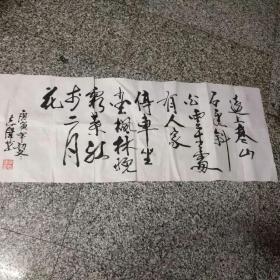 遠上寒山
石徑斜
白雲生處
有人家
停車坐
愛楓林晚
霜葉紅
於二月
花
庚寅年